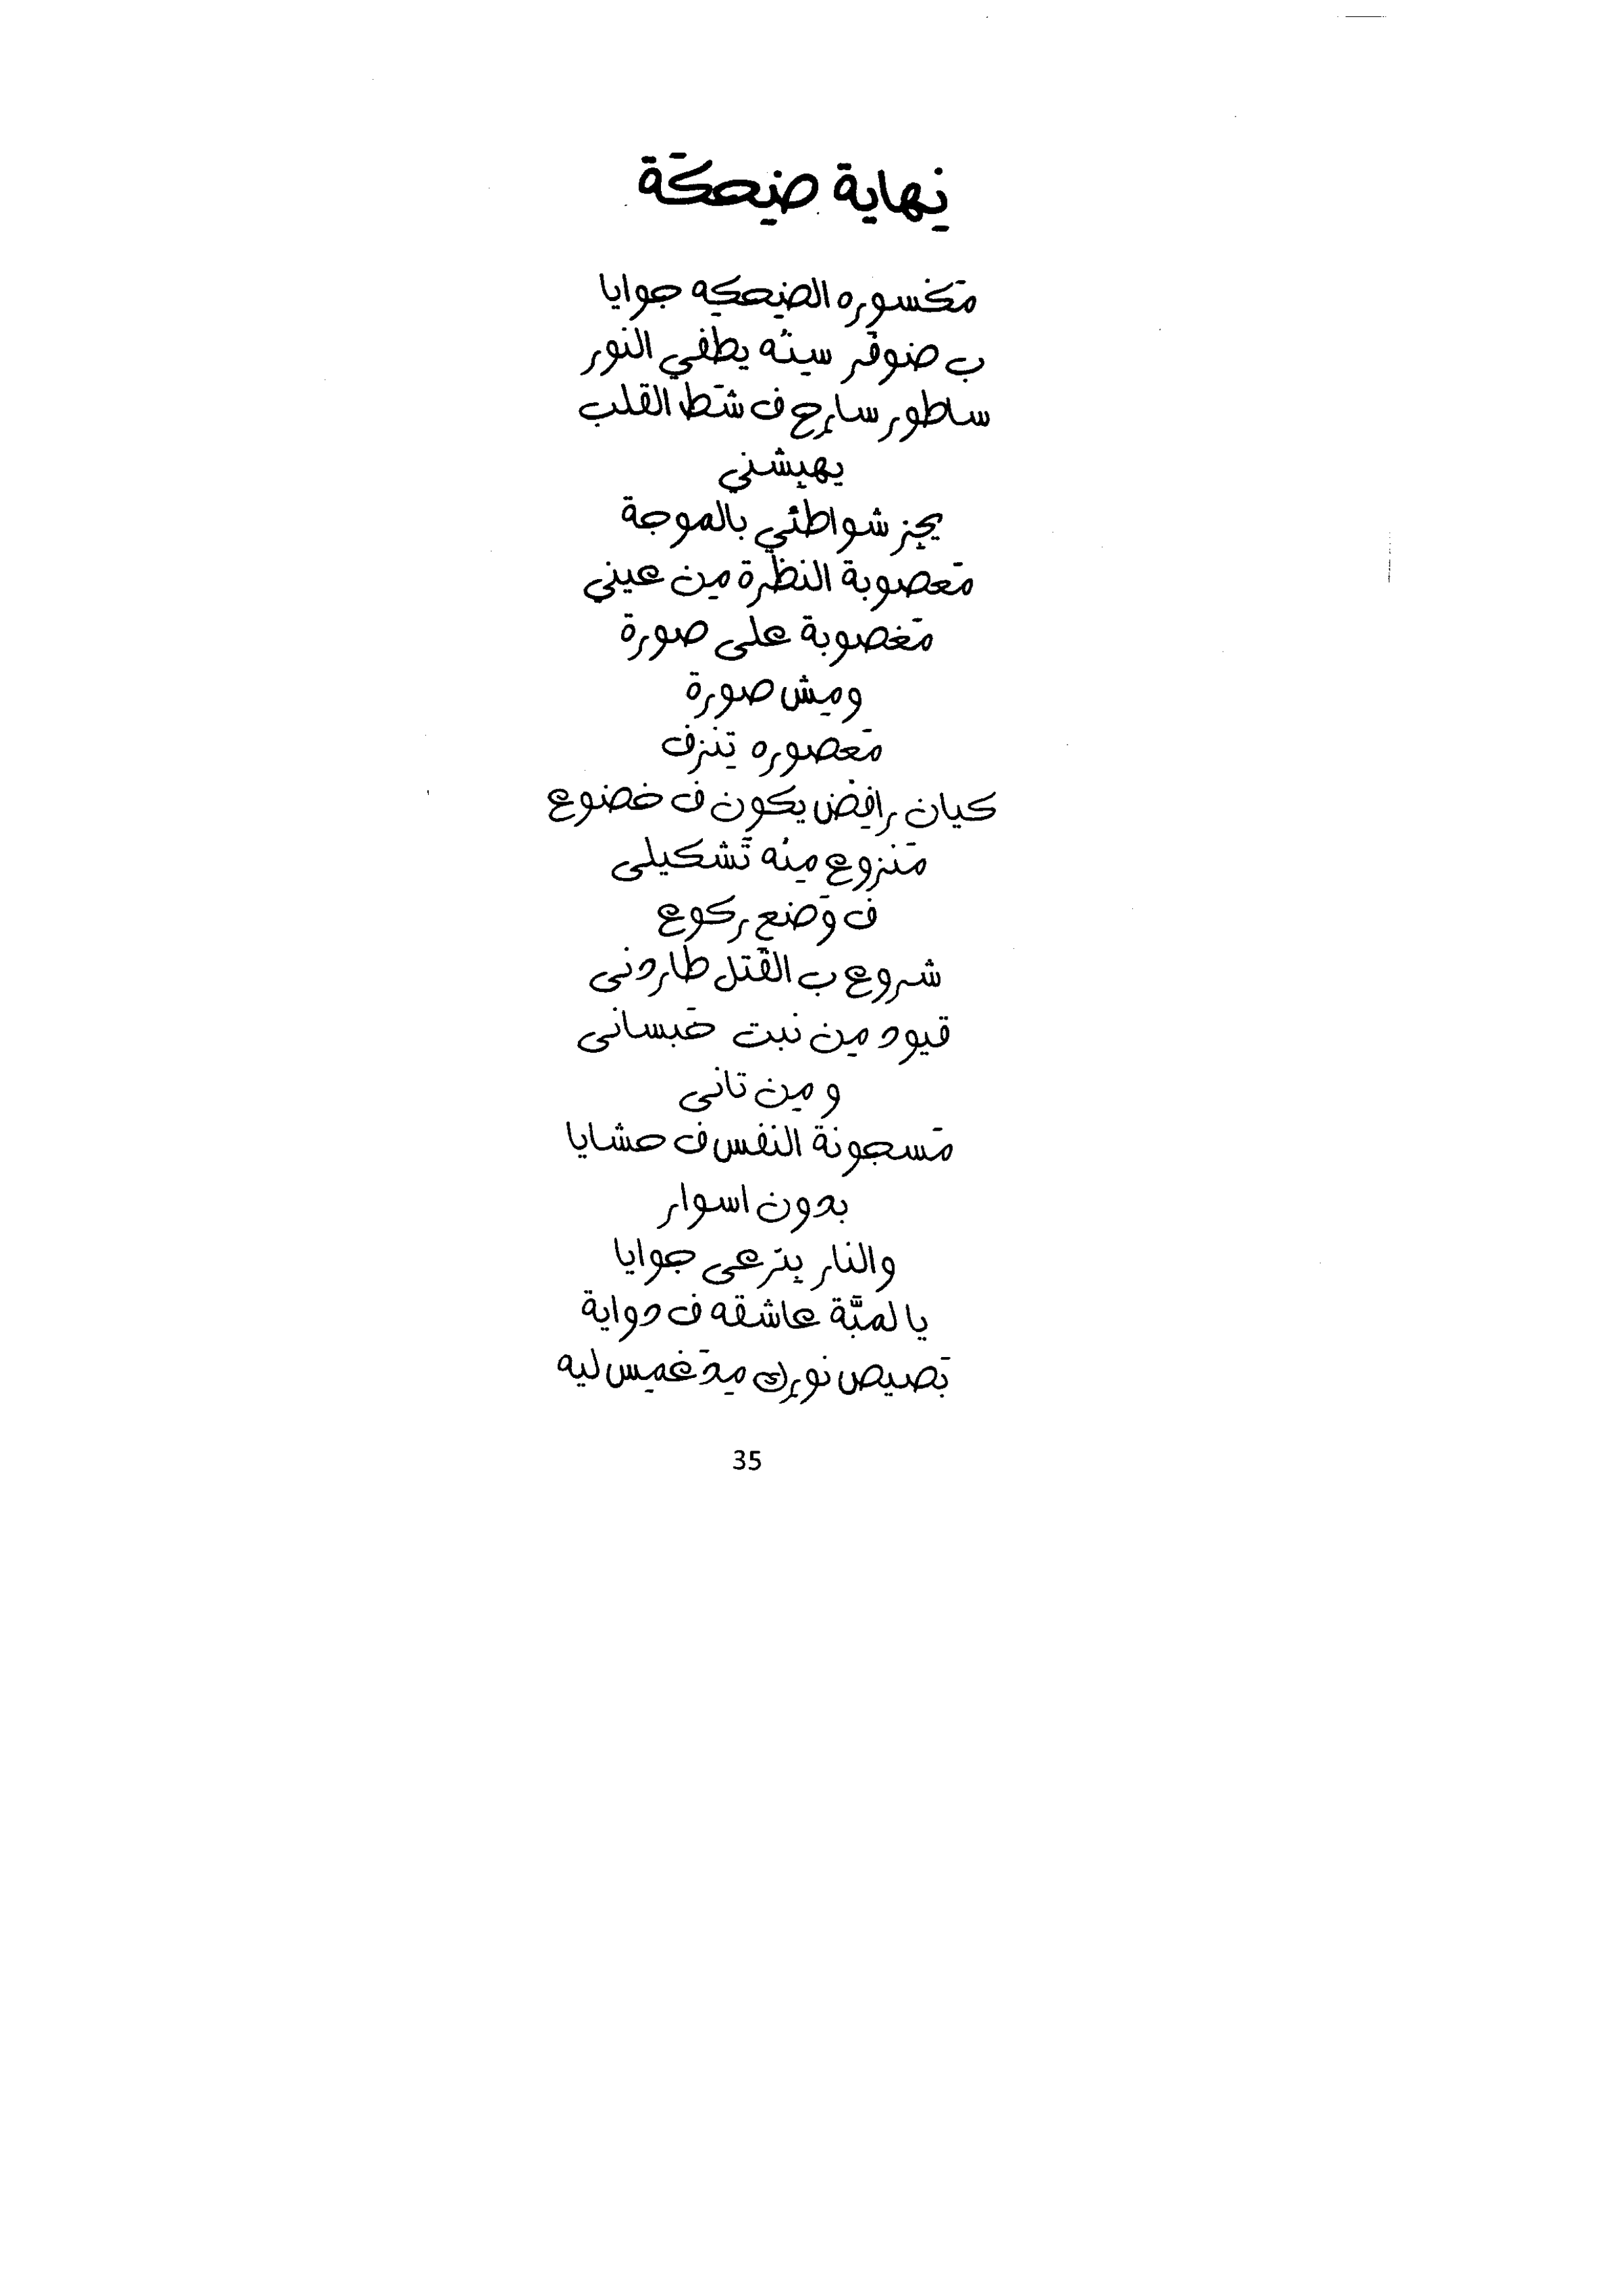 نِهاية ضِحكَة
مَكسوره الضِحكِه جوايا
ب ضوفر سِنُه يطفي النور
ساطور سارِح ف شَط القلب
يهبِشني
يجِز شواطئي بالموجة
مَعصوبة النظرة مِن عيني
مَغصوبة على صورة
ومِش صورة
مَعصوره تِنزف
كيان رافِض يكون ف خضوع
مَنزوع مِنُه تَشكيلى
ف وَضع ركوع
شروع ب القَتل طاردنى
قيود مِن نبت خَبسانى
و مِن تانى
مَسجونة النفس ف حشايا
بدون اسوار
والنار بِتَرعى جوايا
يا لمبَّة عاشقه ف دواية
بَصيص نورِك مِدَغمِس ليه
35